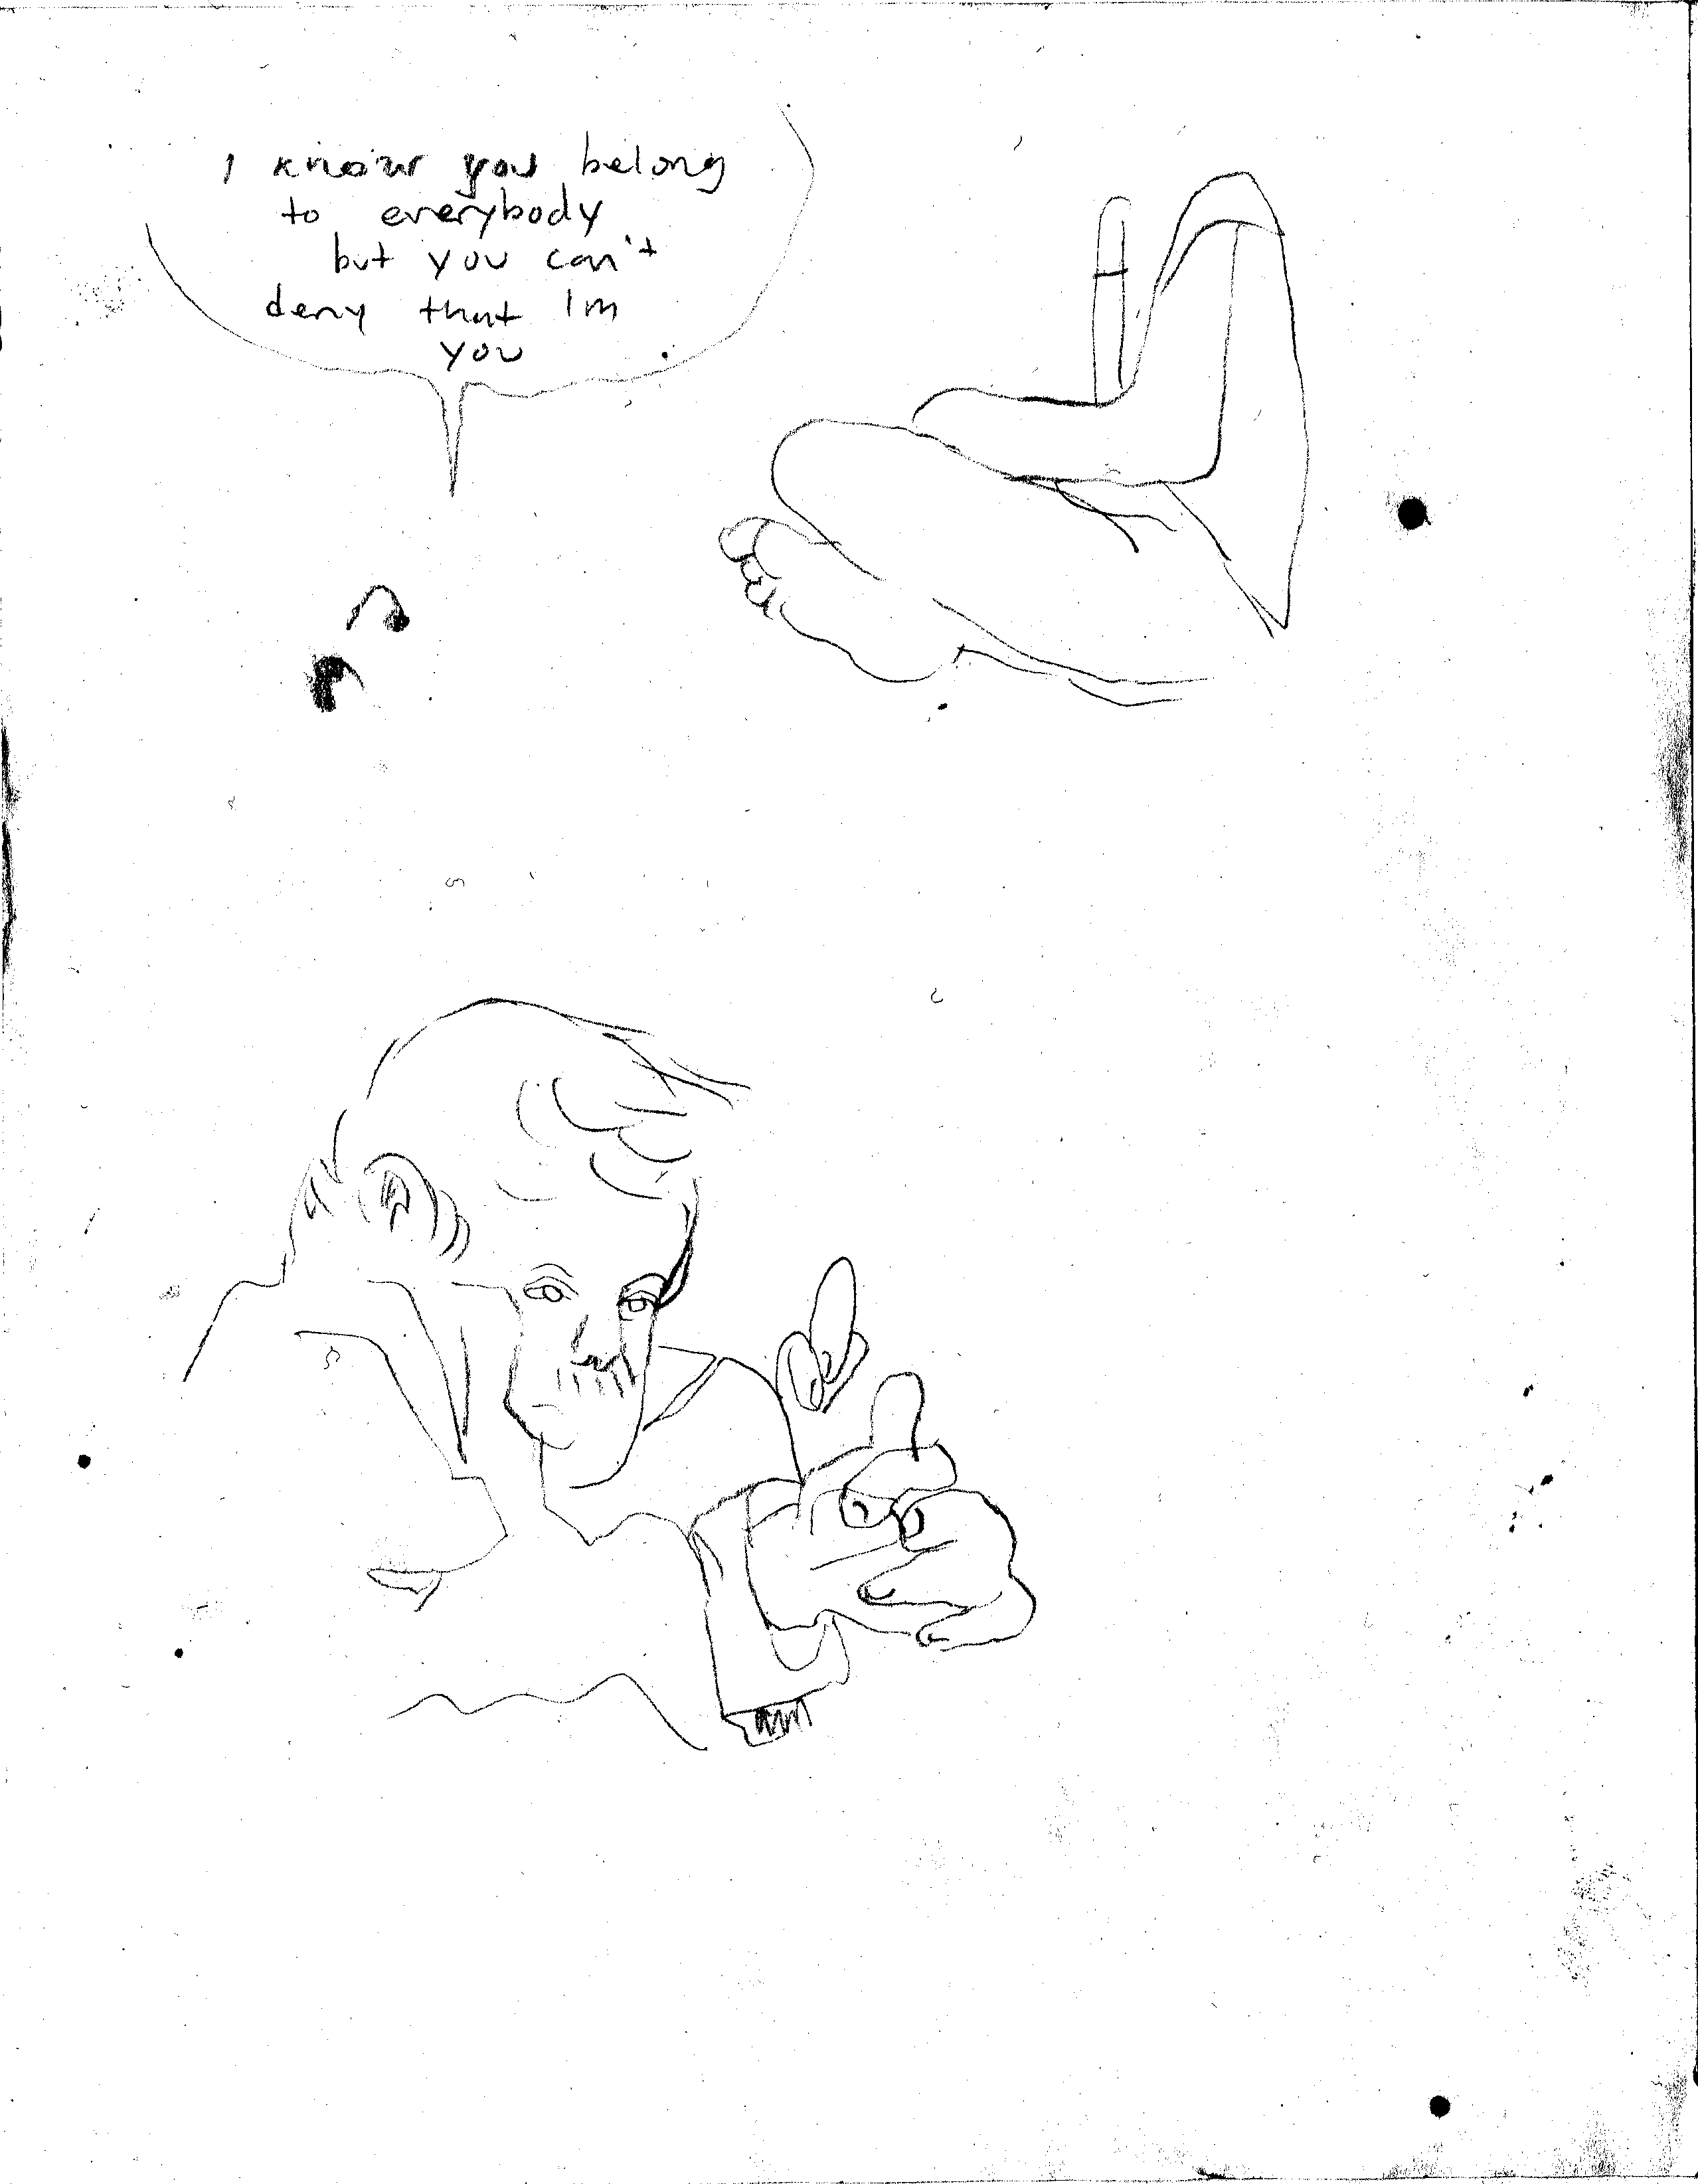 I know you belong
to everybody
but you can't
deny that Im
you